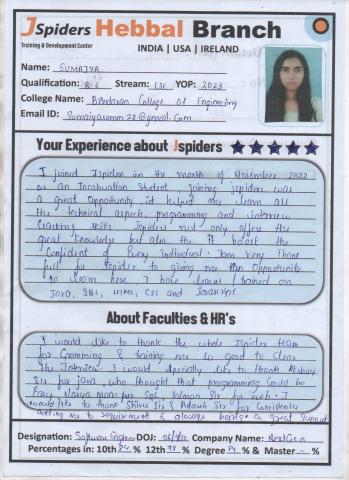 JSpiders Hebbal Branch
Training & Development Center
INDIA | USA | IRELAND
Name: SUMAIYA
Qualification: B.E Stream: CSE YOP: 2023
College Name: Brindavan College Of Engineering
Email ID:
Your Experience about Jspiders
I joined Jspiders in the month of November 2022
as an Incubation Student, joining jspiders was
a great Opportunity, it helped me learn all
the technical aspects, programming and interview
Cracking skills. Jspiders not only offer the
great knowledge but also the it boost the
Confident of Every individual. I am very Thank
full for jspider to giving me this Opportunity
to learn here I have learned / trained on
Java, SQL, HTML, CSS and Javascript
About Faculties & HR's
I would like to thank the whole Jspiders team
for Grooming & training me so good to clear
The Interview. I would specially like to thank Akshay
Sir for java, who thought that programming could be
Easy, Navya mam for Sql, Salman Sir for web. I
would like to thank Shiva Sir & Adarsh Sir for Consistently
adding me to requirement & always being a great Support
Designation: Software Engineer DOJ: Company Name: NextGen
Percentages in: 10th % 12th % Degree % & Master - %